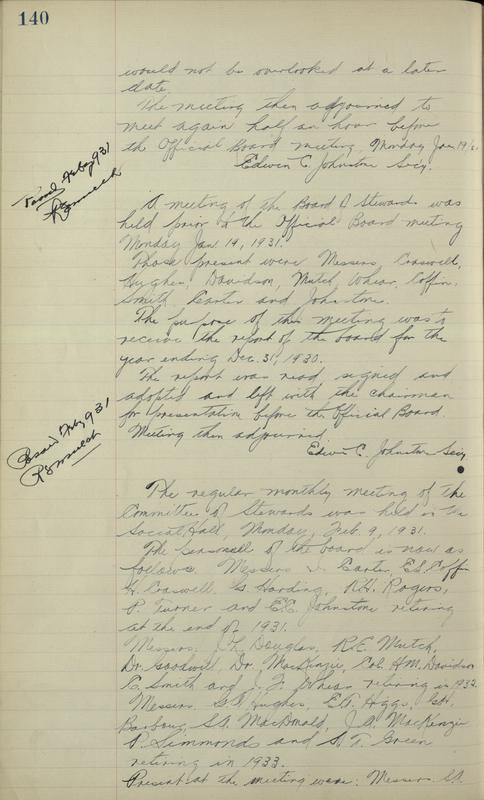 140
would not be overlooked at a later
date.
The meeting then adjourned to
meet again half an hour before
the Official Board meeting, Monday Jan 19/31
Edwin C. Johnstone Sec'y.
Feby 9 31
A meeting of the Board of Stewards was
held prior to the Official Board meeting
Monday Jan 19, 1931.
Those present were Messers, Craswell,
Hughes, Davidson, Mutch, Whear, Coffin,
Smith, Carter and Johnstone.
The purpose of this meeting was to
receive the report of the board for the
year ending Dec. 31, 1930.
The report was read, signed and
adopted and left with the chairman
for presentation before the Official Board.
Meeting then adjourned
Edwin C. Johnstone Sec'y
Feby 9 31
The regular monthly meeting of the
Committee of Stewards was held in the
Social Hall, Monday, Feb. 9, 1931.
The personell of the board is now as
follows. Messers Carter, Coffin
H. Craswell, G. Harding, R.H. Rogers,
P. Turner and E.C. Johnstone retiring
at the end of 1931.
Messers, Douglas, R.E. Mutch,
Dr. Goodwill, Dr. MacKenzie, Col. H.M. Davidson
Smith and J.F. Whear retiring in 1932.
Messers, Hughes, Higgs, Geo.
Barbour, MacDonald, MacKenzie
P. Simmonds and Green
retiring in 1933.
Present at the meeting were: Messers